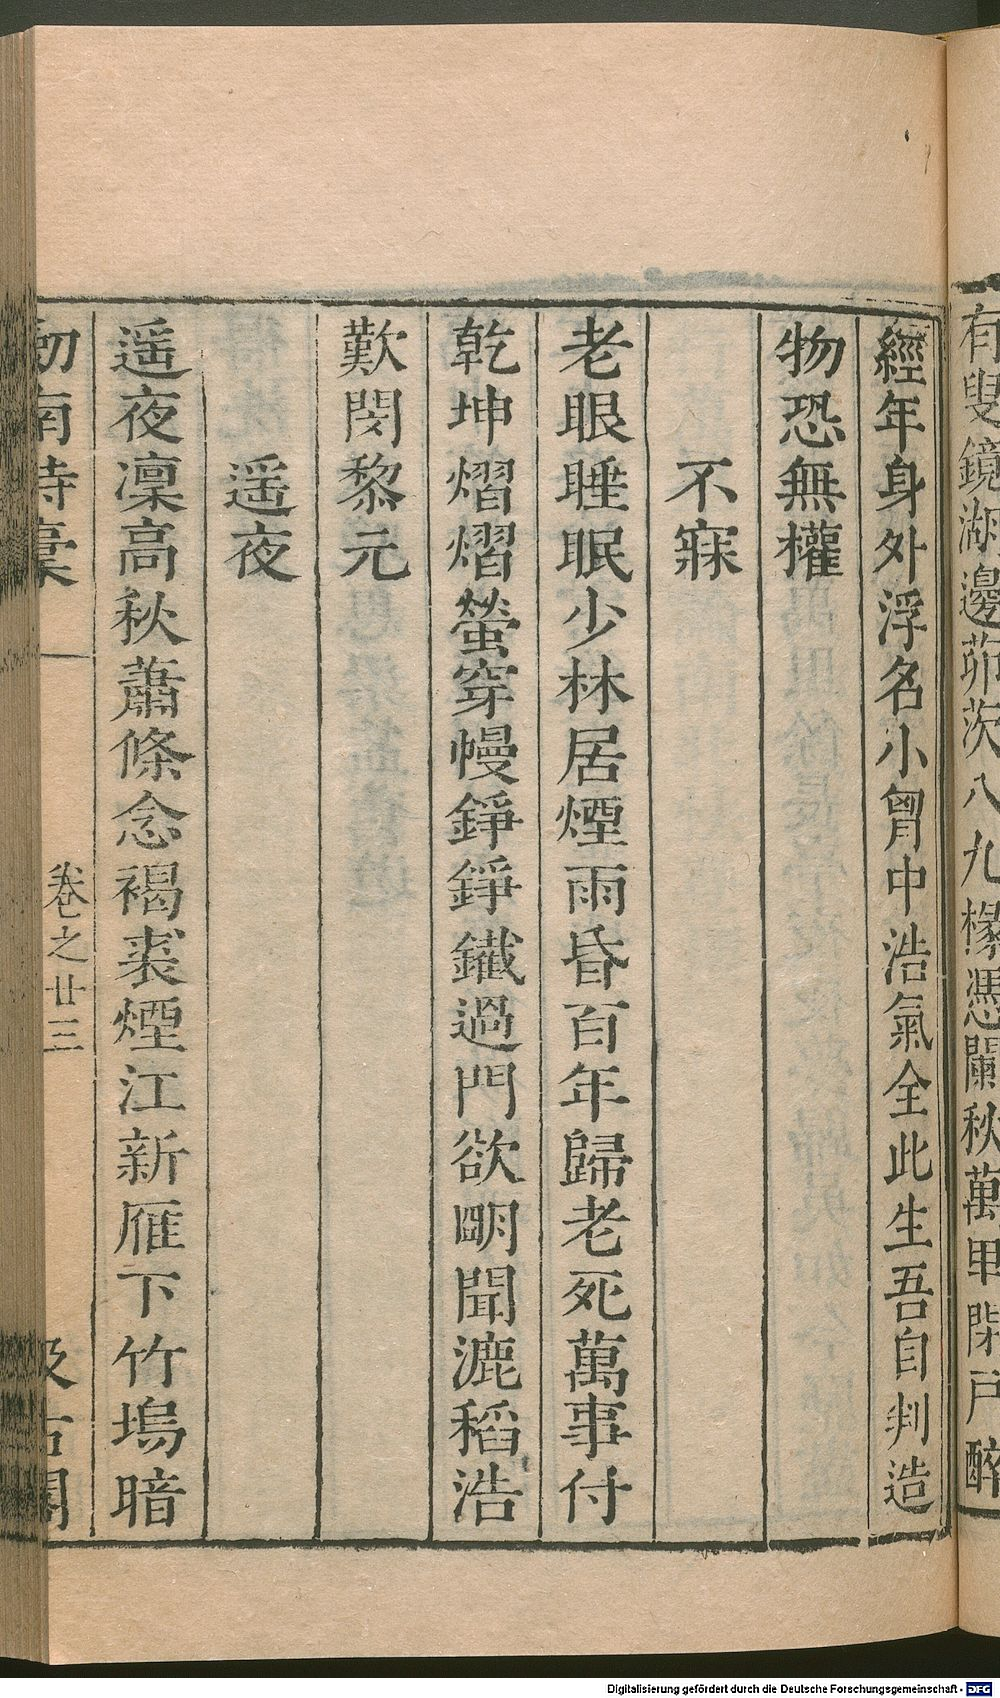 有叟鏡湖邊茆茨八九椽憑闌秋萬里閉戶醉
經年身外浮名小胷中浩氣全此生吾自判造
物恐無權
不寐
老眼睡眠少林居煙雨昏百年歸老死萬事付
乾坤熠熠螢穿幔錚錚鐵過門欲明聞漉稻浩
歎閔黎元
遥夜
遥夜凜高秋蕭條念褐裘煙江新雁下竹塢暗
劒南詩稾
卷之廿三
汲古閣
Digitalisierung gefördert durch die Deutsche Forschungsgemeinschaft - DFG